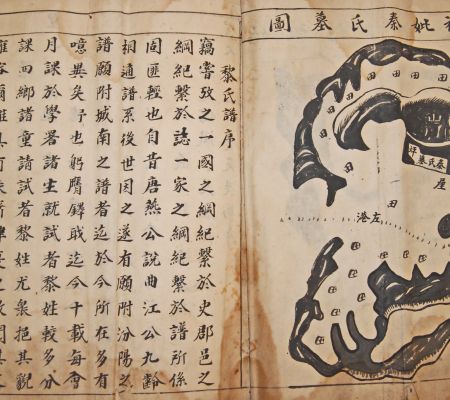 妣秦氏墓圖
妣秦氏墓
左港
田
田
田
田
田
田
田
田
田
黎氏譜序
竊嘗攷之一國之綱紀繫於史郡邑之
綱紀繫於誌一家之綱紀繫於譜所係
固匪輕也自昔唐燕公說曲江公九齡
相通譜系後世因之遂有願附汾陽之
譜願附城南之譜者迄於今所在多有
噫異矣予也躬膺鐸戢迄今十載每會
月課於學署諸生就試者黎姓較多分
課四鄉諸童請試者黎姓尤衆挹其貌
容爾雅具有